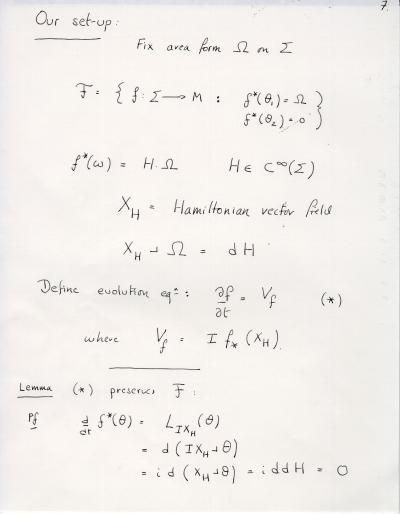 7.
Our set-up:
Fix area form Ω on Σ
F = { f : Σ ⟶ M : f*(θ₁) = Ω
f*(θ₂) = 0 }
f*(ω) = H.Ω H ∈ C^∞(Σ)
X_H = Hamiltonian vector field
X_H ⨼ Ω = dH
Define evolution eqⁿ: ∂f/∂t = V_f (*)
where V_f = I f_*(X_H).
Lemma (*) preserves F :
Pf d/dt f*(θ) = L_{IX_H}(θ)
= d(IX_H ⨼ θ)
= i d(X_H ⨼ θ) = i d d H = 0